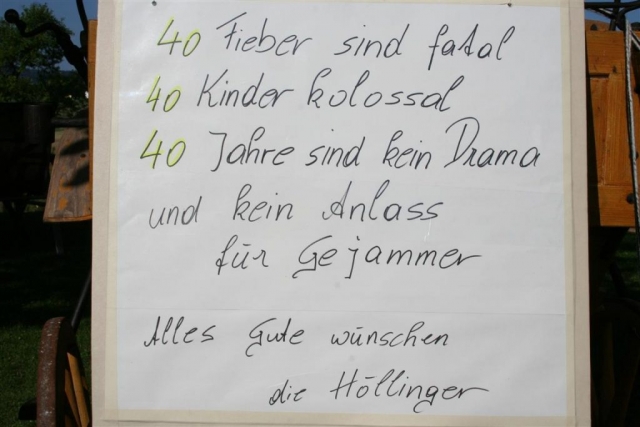 40 Fieber sind fatal
40 Kinder kolossal
40 Jahre sind kein Drama
und kein Anlass
für Gejammer
Alles Gute wünschen
die Höllinger